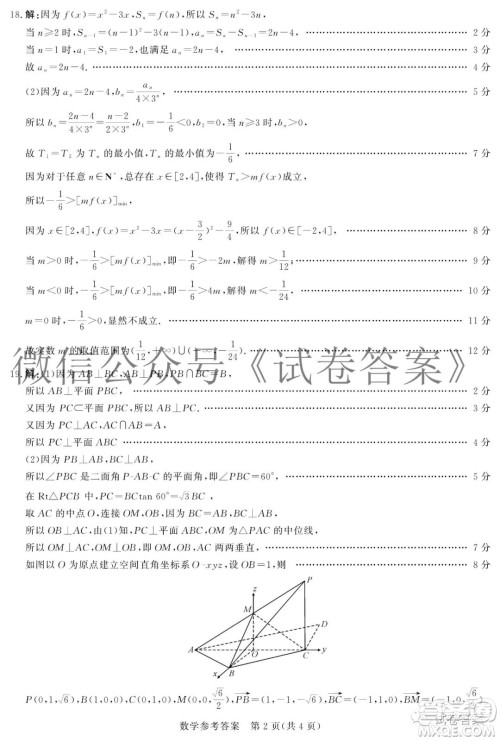 18.解:因为 f(x)=x²-3x,Sₙ=f(n),所以 Sₙ=n²-3n,
当 n≥2 时,Sₙ₋₁=(n-1)²-3(n-1),aₙ=Sₙ-Sₙ₋₁=2n-4. 2分
当 n=1 时,a₁=S₁=-2,也满足 aₙ=2n-4. 3分
故 aₙ=2n-4. 4分
(2)因为 aₙ=2n-4,bₙ=aₙ/(4×3ⁿ), 5分
所以 bₙ=(2n-4)/(4×3ⁿ)=(n-2)/(2×3ⁿ),b₁=-1/6<0,b₂=0,当 n≥3 时,bₙ>0,
故 T₁=T₂ 为 Tₙ 的最小值,Tₙ的最小值为-1/6, 7分
因为对于任意 n∈N*,总存在 x∈[2,4],使得 Tₙ>mf(x)成立,
所以-1/6>[mf(x)]min,
因为 x∈[2,4],f(x)=x²-3x=(x-3/2)²-9/4,所以 f(x)∈[-2,4], 8分
当 m>0 时,-1/6>[mf(x)]min,即-1/6>-2m,解得 m>1/12; 9分
当 m<0 时,-1/6>[mf(x)]min,即-1/6>4m,解得 m<-1/24. 10分
m=0 时,-1/6>0,显然不成立. 11分
故实数 m 的取值范围为(1/12,+∞)∪(-∞,-1/24). 12分
微信公众号《试卷答案》
19.解:(1)因为 AB⊥BC,AB⊥PB,PB∩BC=B,
所以 AB⊥平面 PBC, 2分
又因为 PC⊂平面 PBC,所以 AB⊥PC. 3分
又因为 PC⊥AC,AC∩AB=A,
所以 PC⊥平面 ABC 4分
(2)因为 PB⊥AB,BC⊥AB,
所以∠PBC 是二面角 P-AB-C 的平面角,即∠PBC=60°, 5分
在 Rt△PCB 中,PC=BCtan 60°=√3BC,
取 AC 的中点 O,连接 OM,OB,因为 BC=AB,BC⊥AB,
所以 OB⊥AC,由(1)知,PC⊥平面 ABC,OM 为△PAC 的中位线,
所以 OM⊥AC,OM⊥OB,即 OM,OB,AC 两两垂直, 7分
如图以 O 为原点建立空间直角坐标系 O-xyz,设 OB=1,则 8分
z
P
M
D
A
O
C
y
B
x
P(0,1,√6),B(1,0,0),C(0,1,0),M(0,0,√6/2),PB→=(1,-1,-√6),BC→=(-1,1,0),BM→=(-1,0,√6/2)
数学参考答案 第 2 页(共 4 页)
试卷答案